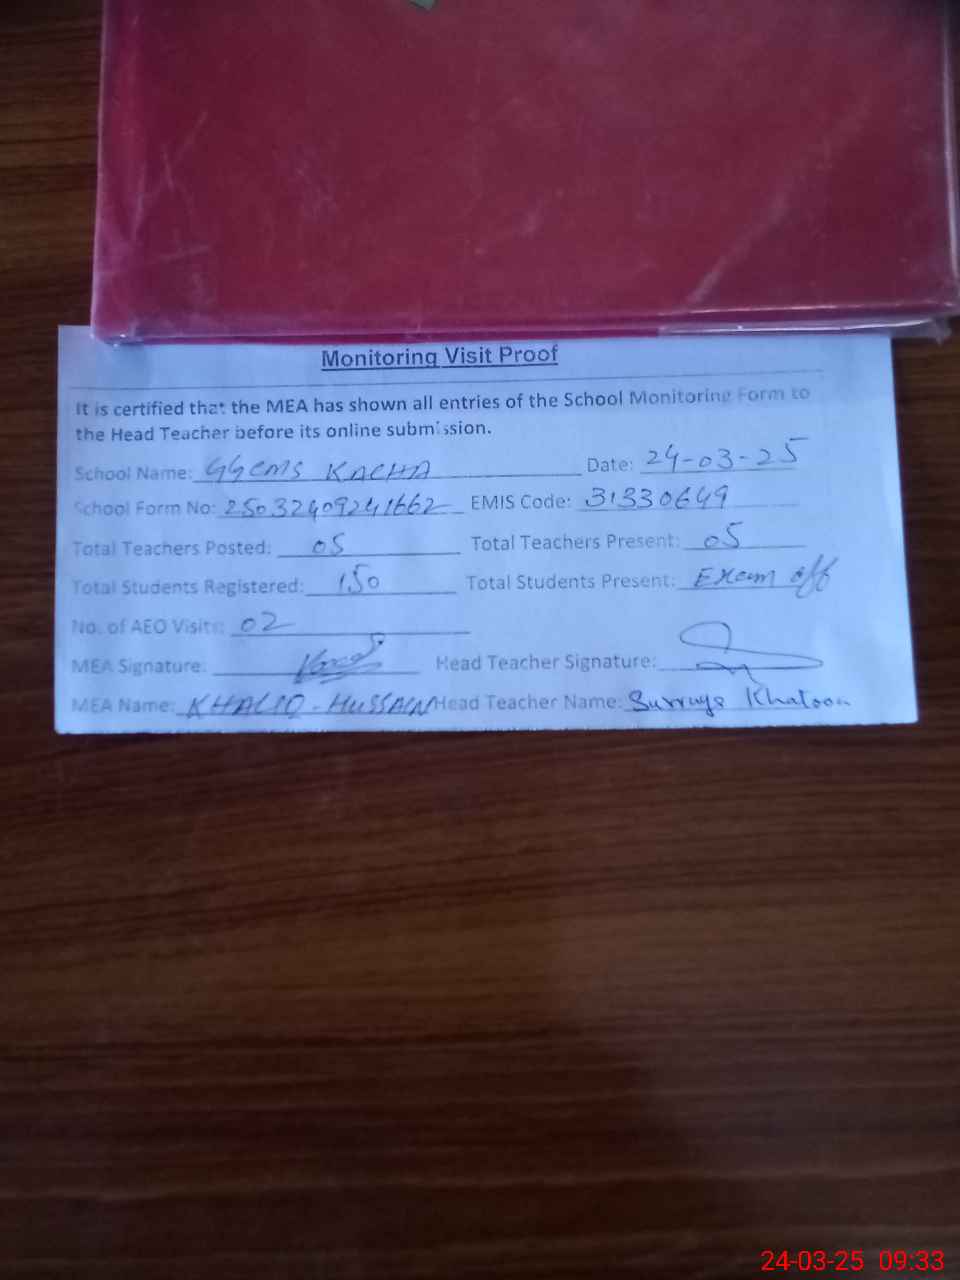 Monitoring Visit Proof
It is certified that the MEA has shown all entries of the School Monitoring Form to
the Head Teacher before its online submission.
School Name: GGCMS KACHA Date: 24-03-25
School Form No: 25032409241662 EMIS Code: 31330649
Total Teachers Posted: 05 Total Teachers Present: 05
Total Students Registered: 150 Total Students Present: Exam off
No. of AEO Visits: 02
MEA Signature: Head Teacher Signature:
MEA Name: KHALID - HUSSAIN Head Teacher Name: Surraya Khatoon
24-03-25 09:33